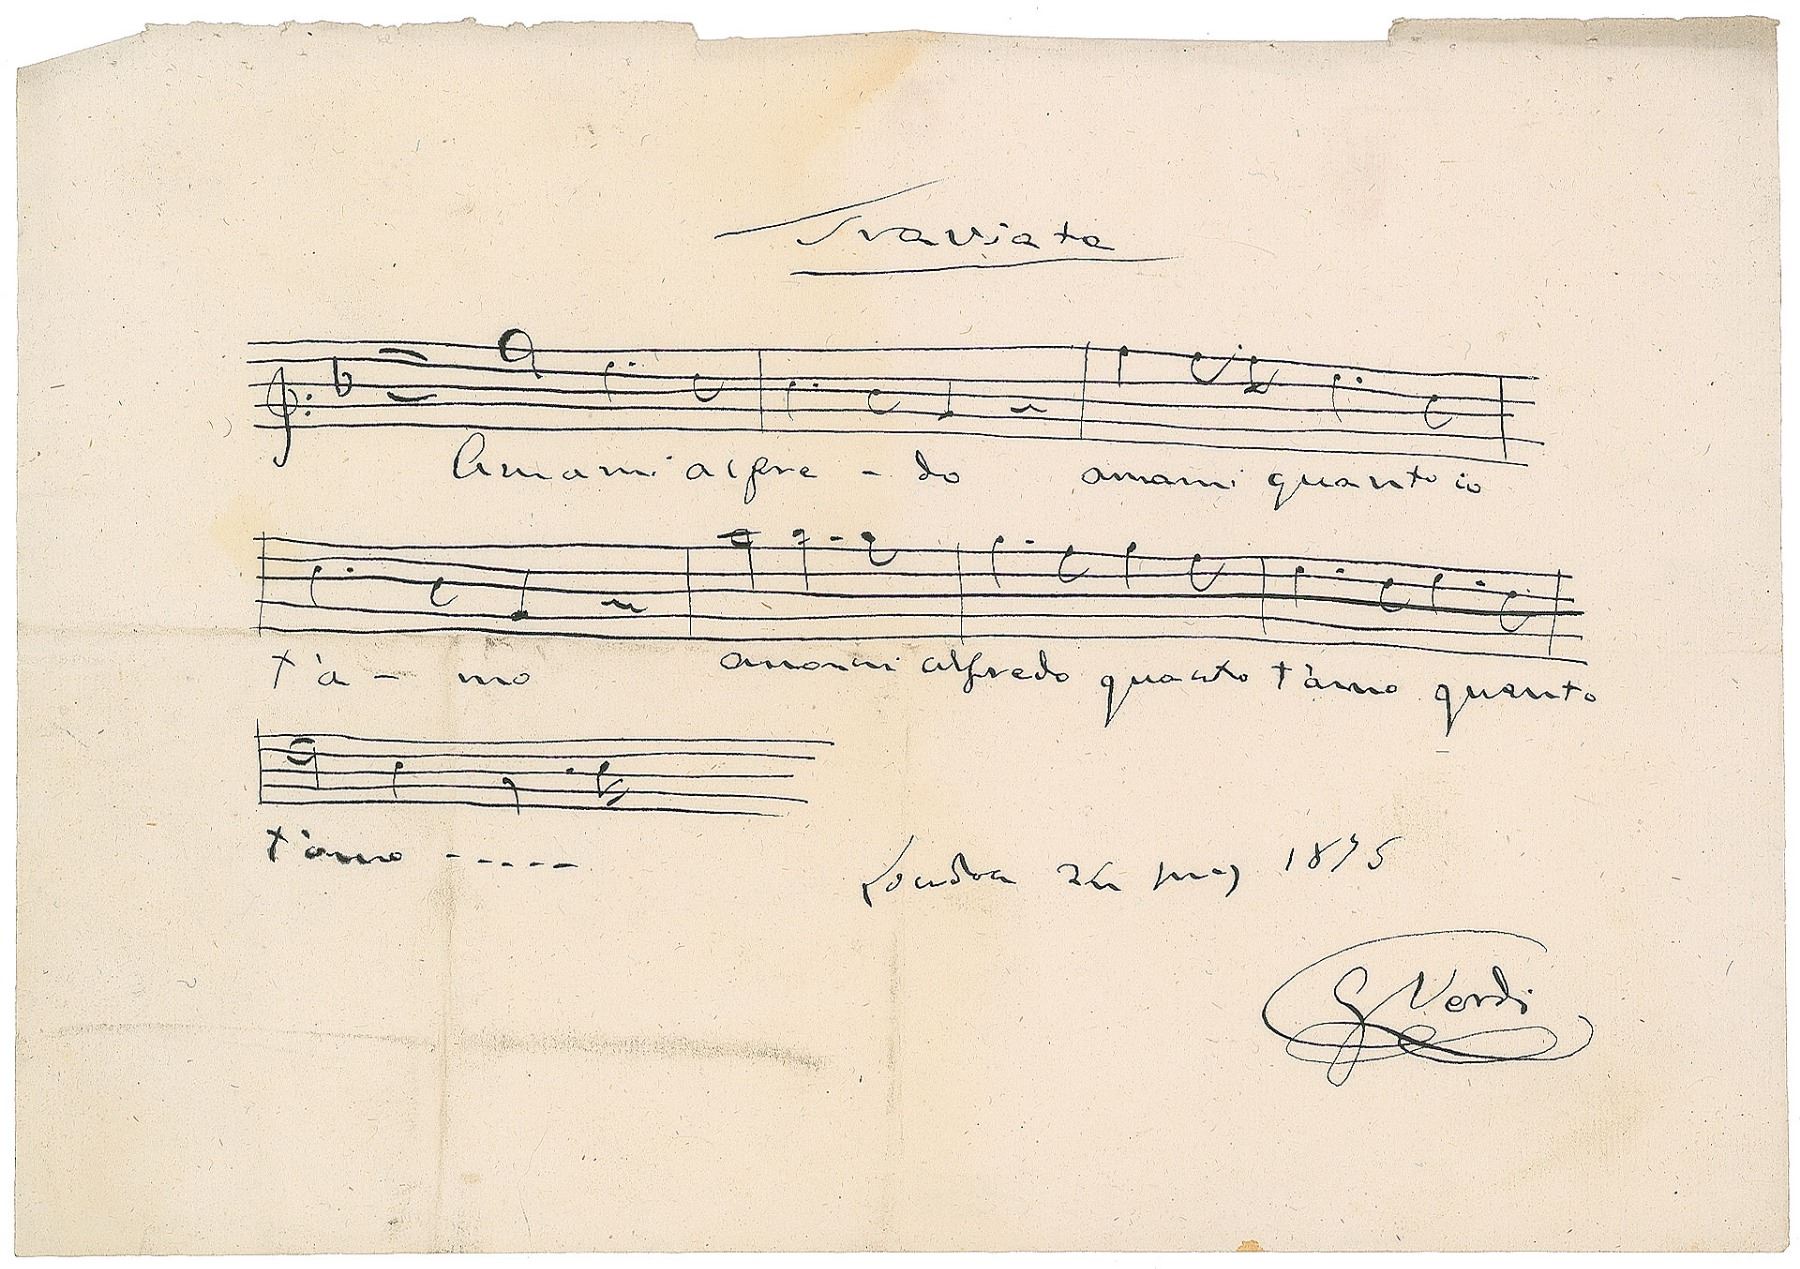 Traviata
Amami alfre - do amami quanto io
t'à - mo amami alfredo quanto t'àmo quanto
t'àmo -----
Londra 1875
G Verdi